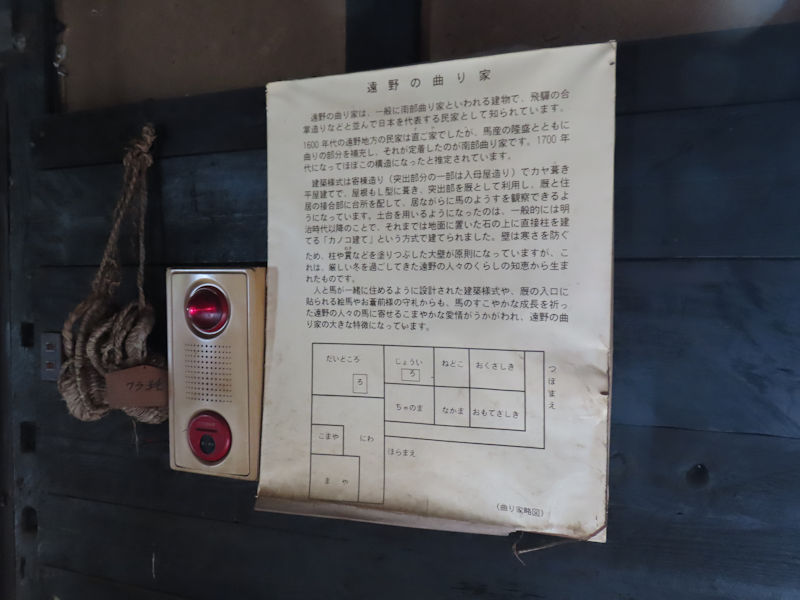 遠野の曲り家
遠野の曲り家は、一般に南部曲り家といわれる建物で、飛騨の合
掌造りなどと並んで日本を代表する民家として知られています。
1600年代の遠野地方の民家は直ご家でしたが、馬産の隆盛とともに
曲りの部分を補充し、それが定着したのが南部曲り家です。1700年
代になってほぼこの構造になったと推定されています。
建築様式は寄棟造り（突出部分の一部は入母屋造り）でカヤ葺き
平屋建てで、屋根もL型に葺き、突出部を厩として利用し、厩と住
居の接合部に台所を配して、居ながらに馬のようすを観察できるよ
うになっています。土台を用いるようになったのは、一般的には明
治時代以降のことで、それまでは地面に置いた石の上に直接柱を建
てる「カノコ建て」という方式で建てられました。壁は寒さを防ぐ
ため、柱や貫などを塗りつぶした大壁が原則になっていますが、こ
れは、厳しい冬を過ごしてきた遠野の人々のくらしの知恵から生ま
れたものです。
人と馬が一緒に住めるように設計された建築様式や、厩の入口に
貼られる絵馬やお蒼前様の守札からも、馬のすこやかな成長を祈っ
た遠野の人々の馬に寄せるこまやかな愛情がうかがわれ、遠野の曲
り家の大きな特徴になっています。
だいどころ
ろ
しょうい
ろ
ねどこ
おくざしき
つぼまえ
ちゃのま
なかま
おもてざしき
こまや
にわ
ほらまえ
まや
（曲り家略図）